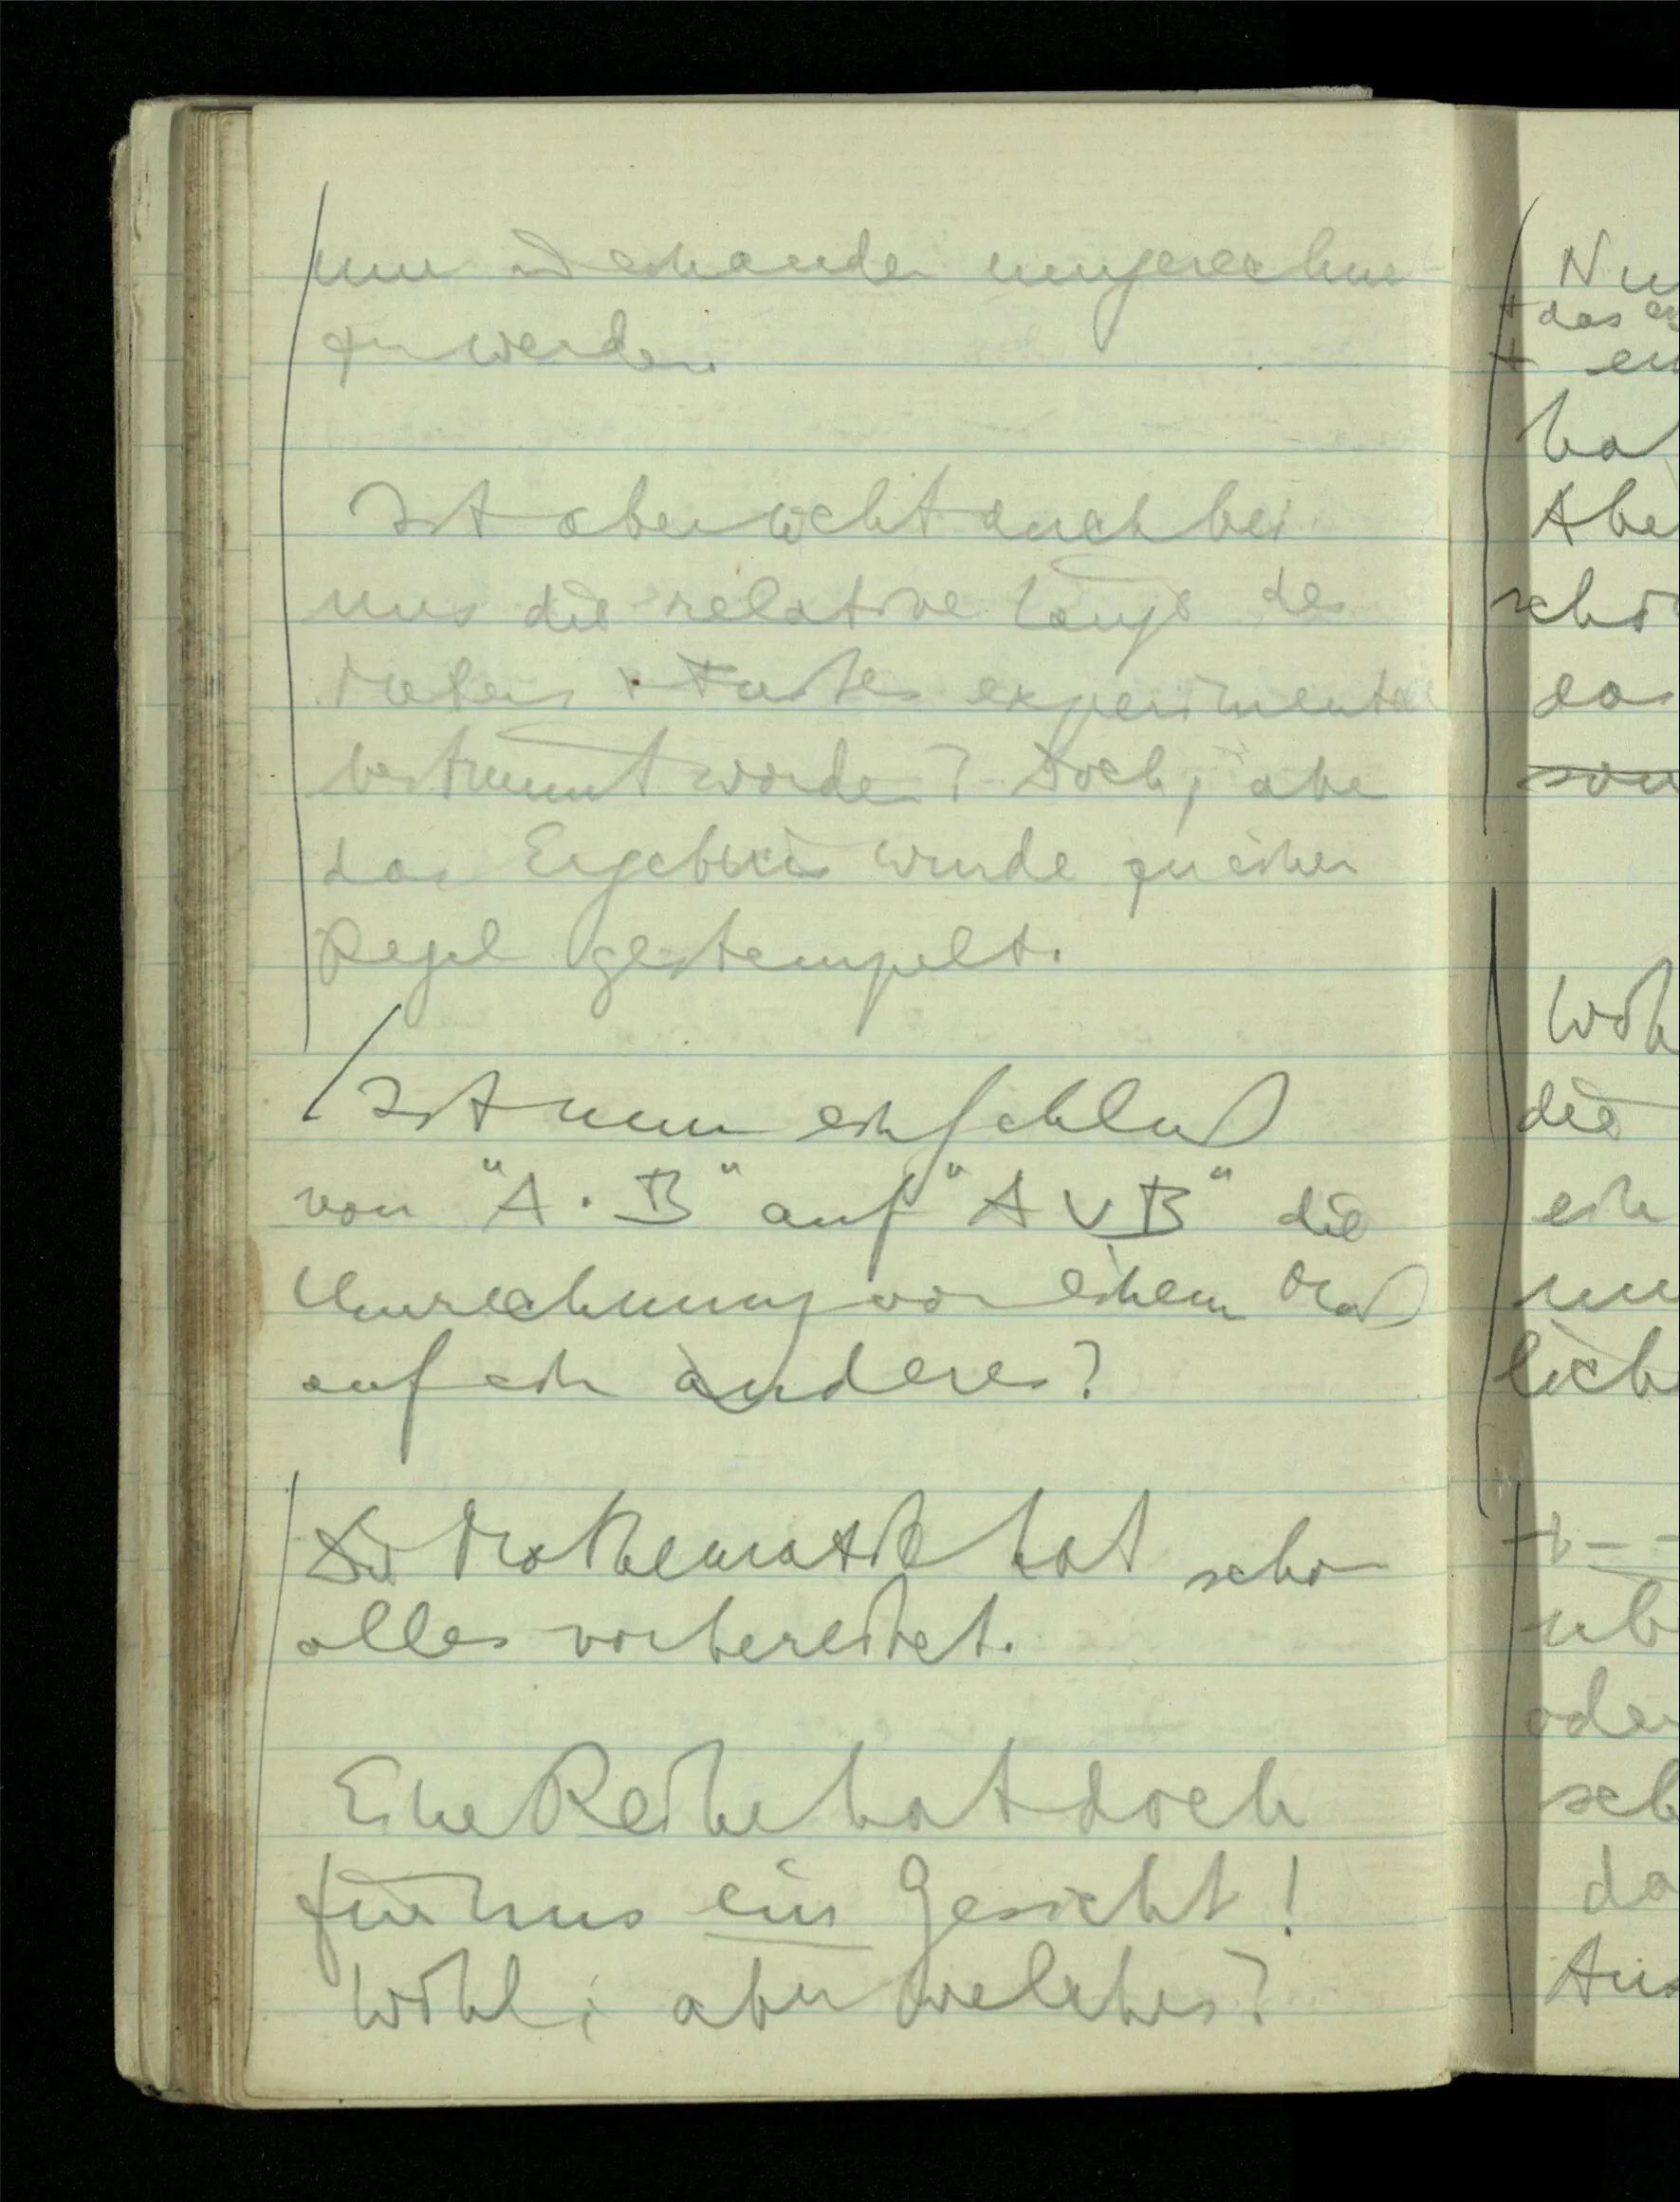 nun ineinander umgerechnet
zu werden.
Ist aber nicht auch bei
uns die relative Länge des
Meters & Fußes experimentell
bestimmt worden? Doch; aber
das Ergebnis wurde zu einer
Regel gestempelt.
Ist nun ein Schluß
von "A · B" auf "A ∨ B" die
Umrechnung von einem Maß
auf ein anderes?
Die Mathematik hat schon
alles vorbereitet.
Eine Reihe hat doch
für uns ein Gesicht!
Wohl; aber welches?
Nu
+ das
+ ein
ha
Abe
schö
das
son
Woh
die
ein
nu
lich
üb
oder
sch
da
Aus